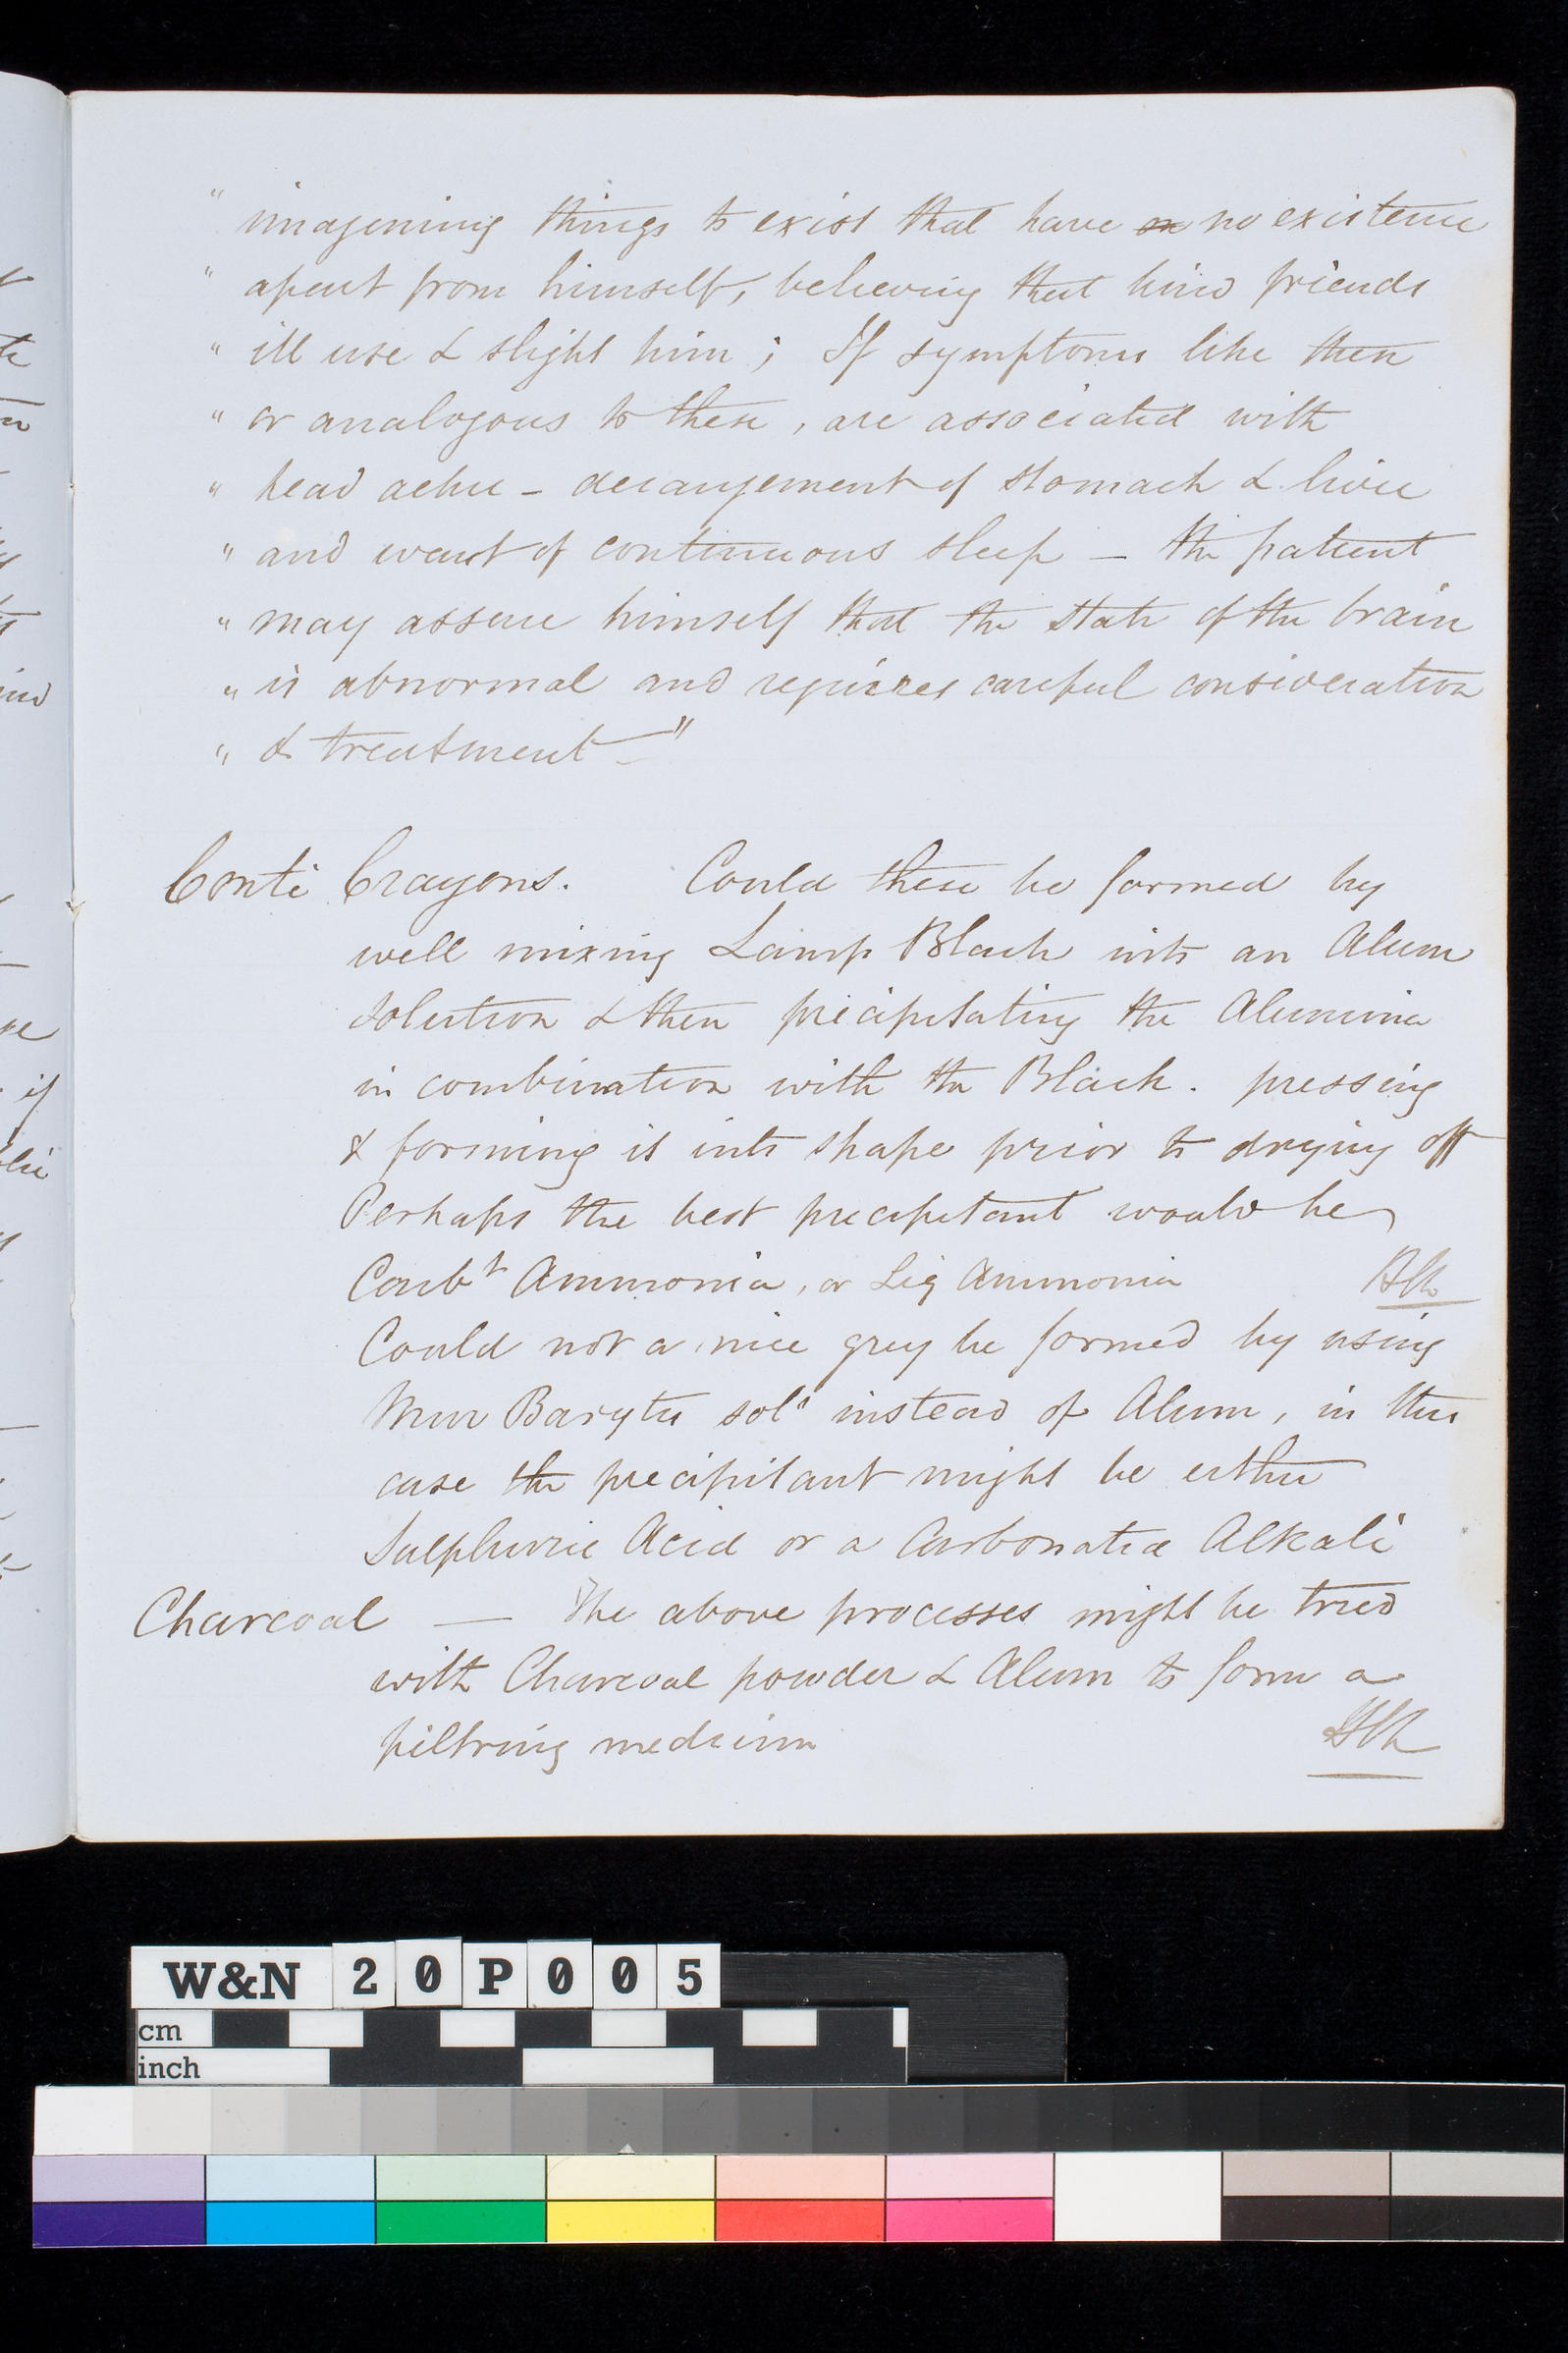 " imagening things to exist that have no existence
" apart from himself, believing that kind friends
" ill use & slight him ; If symptoms like then
" or analogous to these, are associated with
" head ache - derangement of stomach & liver
" and want of continuous sleep - the patient
" may assure himself that the state of the brain
" is abnormal and requires careful consideration
" & treatment - "
Conti Crayons. Could these be formed by
well mixing Lamp Black into an Alum
solution & then precipitating the Alumina
in combination with the Black. pressing
& forming it into shape prior to drying off
Perhaps the best precipitant would be
Carbt Ammonia, or Liq Ammonia
Could not a nice grey be formed by using
Mur Baryta soln instead of Alum, in this
case the precipitant might be either
Sulphuric Acid or a Carbonated Alkali
Charcoal — The above processes might be tried
with Charcoal powder & Alum to form a
filtring medium
W&N 20P005
cm
inch